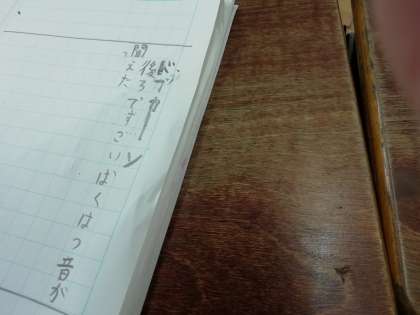 ドッカーン
後ろですごいばくはつ音が
聞こえた